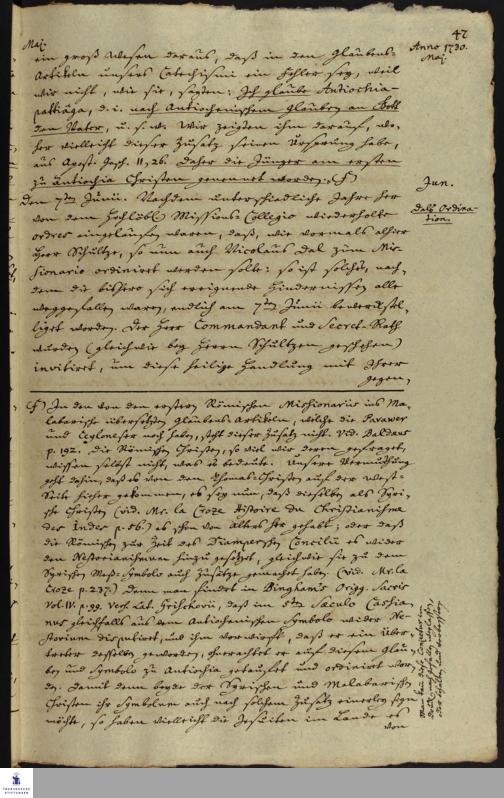 47
Maj.
Anno 1730.
Maj.
ein groß Wesen daraus, daß in den Glaubens-
Artikeln unsers Catechismi ein Fehler sey, weil
wir nicht, wie sie, sagten: Ich glaube Antiochia-
d. i. nach Antiochenischem Glauben an Gott
den Vater, u. s. w. Wir zeigten ihm darauf, wo-
her vielleicht dieser Zusatz seinen Ursprung habe,
aus Apost. Gesch. 11, 26. Daher die Jünger am ersten
zu Antiochia Christen genennet worden. (f)
Jun.
Den 7ten Junii. Nachdem unterschiedliche Jahre her
Dals Ordina-
tion.
von dem Hochlöbl. Missions-Collegio wiederholte
ordres eingelaufen waren, daß, wie vormals alhier
Herr Schultze, so nun auch Nicolaus Dal zum Mis-
sionario ordiniret werden solte: so ist solches, nach-
dem die bishero sich ereignende Hindernissen alle
weggefallen waren, endlich am 7ten Junii bewerckstel-
liget worden. Der Herr Commandant und Secret-Rath
wurden (gleichwie bey Herrn Schultzen geschehen)
invitiret, um diese heilige Handlung mit Ihrer
Gegen-
(f) In den von den erstern Römischen Missionariis ins Ma-
labarische übersetzten Glaubens-Artikeln, welche die Parawer
und Ceyloneser noch haben, steht dieser Zusatz nicht. Vid. Baldaeus
p. 192. die Römischen Christen, so viel wir deren gefraget,
wissen selbst nicht, was es bedeute. Unsere Vermuthung
geht dahin, daß es von den Thomas-Christen auf der West-
Seite hieher gekommen, es sey nun, daß dieselben als Syri-
sche Christen (vid. Mr. la Croze Histoire du Christianisme
des Indes p. 56.) es schon von Alters her gehabt; oder daß
die Römischen zur Zeit des Diamperschen Concilii es wider
den Nestorianismum hinzu gesetzet, gleichwie sie zu dem
Syrischen Meß-Symbolo auch Zusätze gemachet haben. (vid. Mr. la
Croze p. 237.) Denn man findet in Binghams Origg. Sacris
Vol. IV. p. 99. Vers. Lat. Grischovii, daß im 5ten Saeculo Cassia-
nus gleichfalls aus dem Antiochenischen Symbolo wider Ne-
storium disputiret, und ihm vorwirft, daß er ein Über-
treter desselben geworden, ohnerachtet er auf diesem Glau-
ben und Symbolo zu Antiochia getauffet und ordiniret wor-
den. Damit denn beyde der Syrischen und Malabarischen
Christen ihr Symbolum auch nach solchem Zusatz einerley seyn
möchte, so haben vielleicht die Jesuiten im Lande es
von
FRANCKESCHE
STIFTUNGEN